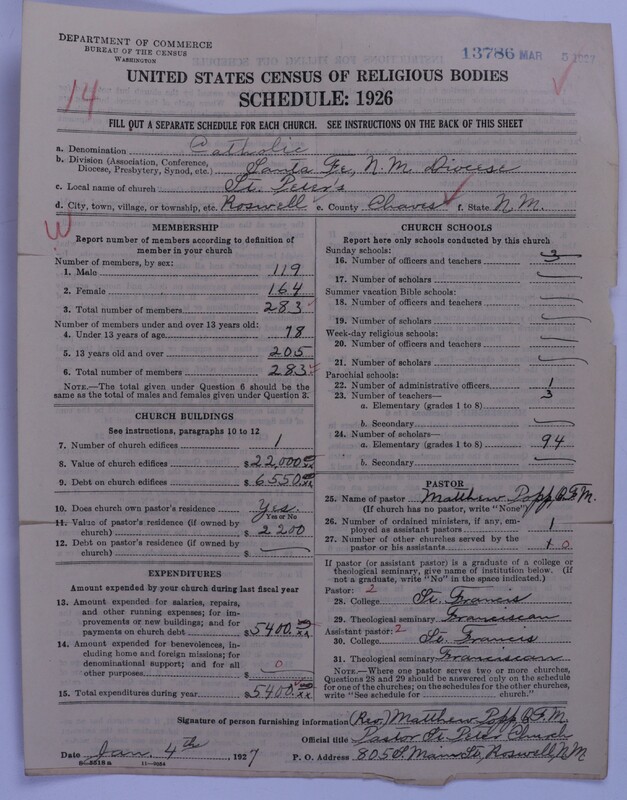 DEPARTMENT OF COMMERCE
BUREAU OF THE CENSUS
WASHINGTON
13786 MAR 5 1927
UNITED STATES CENSUS OF RELIGIOUS BODIES
SCHEDULE: 1926
14
FILL OUT A SEPARATE SCHEDULE FOR EACH CHURCH. SEE INSTRUCTIONS ON THE BACK OF THIS SHEET
a. Denomination Catholic
b. Division (Association, Conference, Diocese, Presbytery, Synod, etc.) Santa Fe, N.M. Diocese
c. Local name of church St. Peter's
d. City, town, village, or township, etc. Roswell e. County Chaves f. State N.M.
W
MEMBERSHIP
Report number of members according to definition of
member in your church
Number of members, by sex:
1. Male 119
2. Female 164
3. Total number of members 283
Number of members under and over 13 years old:
4. Under 13 years of age 78
5. 13 years old and over 205
6. Total number of members 283
NOTE.—The total given under Question 6 should be
the same as the total of males and females given under Question 3.
CHURCH BUILDINGS
See instructions, paragraphs 10 to 12
7. Number of church edifices 1
8. Value of church edifices $22,000.00
9. Debt on church edifices $6550.00
10. Does church own pastor's residence Yes
Yes or No
11. Value of pastor's residence (if owned by
church) $ 2200
12. Debt on pastor's residence (if owned by
church) $ —
EXPENDITURES
Amount expended by your church during last fiscal year
13. Amount expended for salaries, repairs,
and other running expenses; for im-
provements or new buildings; and for
payments on church debt $5400.00
14. Amount expended for benevolences, in-
cluding home and foreign missions; for
denominational support; and for all
other purposes $ — 0
15. Total expenditures during year $5400.00
CHURCH SCHOOLS
Report here only schools conducted by this church
Sunday schools:
16. Number of officers and teachers 3
17. Number of scholars —
Summer vacation Bible schools:
18. Number of officers and teachers —
19. Number of scholars —
Week-day religious schools:
20. Number of officers and teachers —
21. Number of scholars —
Parochial schools:
22. Number of administrative officers 1
23. Number of teachers— 3
a. Elementary (grades 1 to 8)
b. Secondary —
24. Number of scholars—
a. Elementary (grades 1 to 8) 94
b. Secondary —
PASTOR
25. Name of pastor Matthew Popp, O.F.M.
(If church has no pastor, write "None")
26. Number of ordained ministers, if any, em-
ployed as assistant pastors 1
27. Number of other churches served by the
pastor or his assistants 1 0
If pastor (or assistant pastor) is a graduate of a college or
theological seminary, give name of institution below. (If
not a graduate, write "No" in the space indicated.)
Pastor: 2
28. College St. Francis
29. Theological seminary Franciscan
Assistant pastor: 2
30. College St. Francis
31. Theological seminary Franciscan
NOTE.—Where one pastor serves two or more churches,
Questions 28 and 29 should be answered only on the schedule
for one of the churches; on the schedules for the other churches,
write "See schedule for ............ church."
Signature of person furnishing information (Rev.) Matthew Popp O.F.M.
Official title Pastor St. Peter Church
Date Jan. 4th, 1927 P. O. Address 805 S. Main St., Roswell, N.M.
8—5518a 11—9584